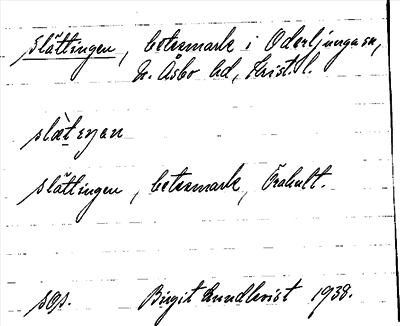 slättingen, betesmark i Oderljunga sn,
N. Åsbo hd, Krist. l.
slæ̀teŋən
slättingen, betesmark, Örahult.
sgs. Birgit Lundkvist 1938.